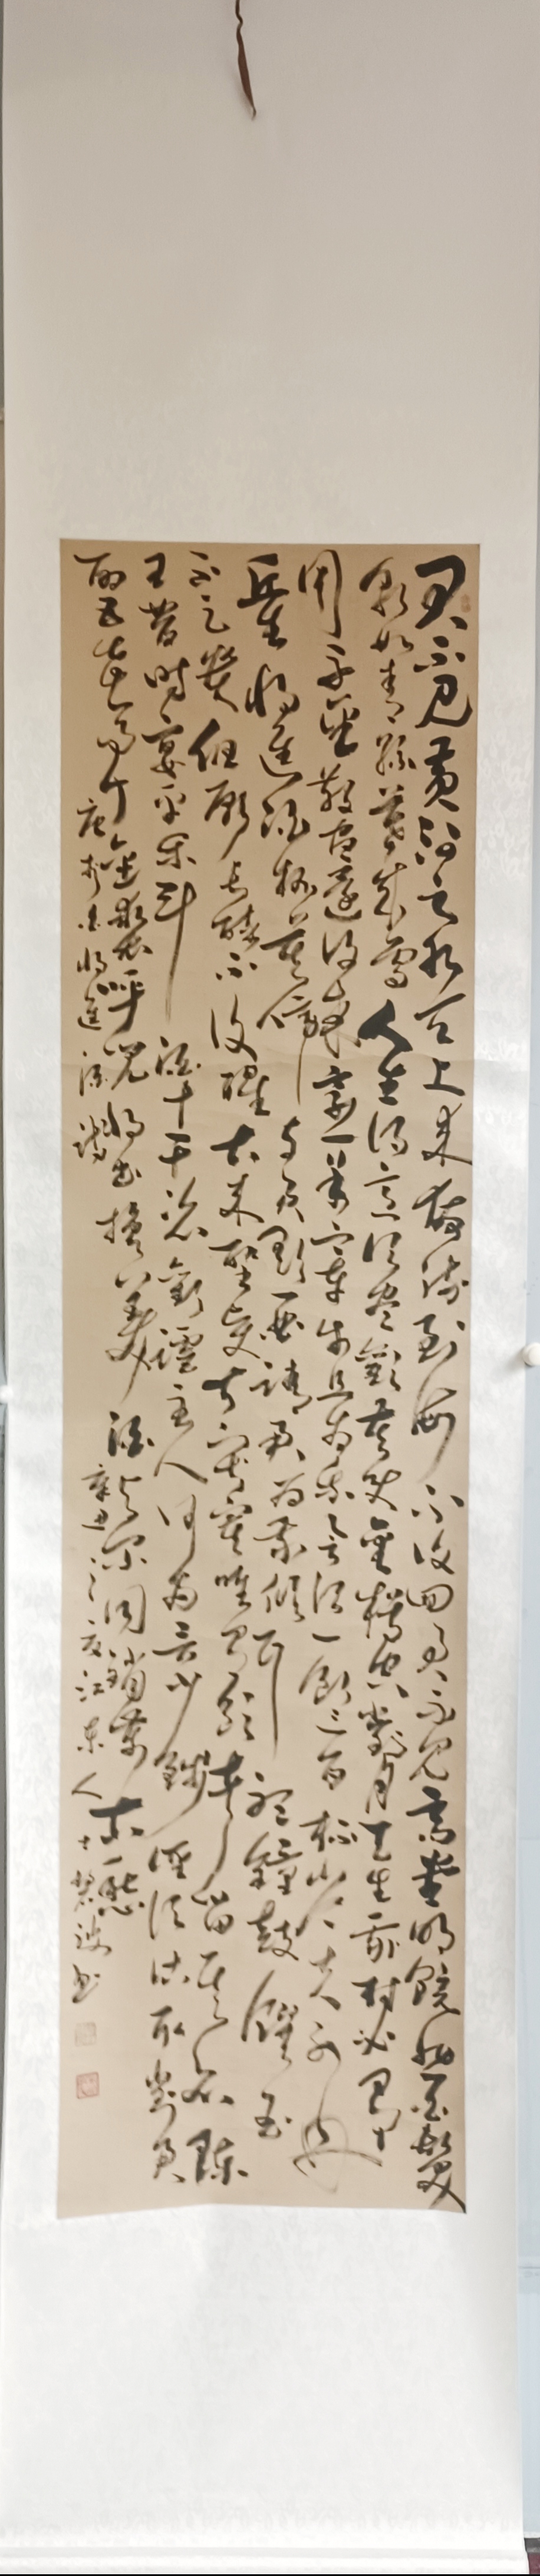 君不见黄河之水天上来奔流到海不复回君不见高堂明镜悲白发
朝如青丝暮成雪人生得意须尽欢莫使金樽空对月天生我材必有
用千金散尽还复来烹羊宰牛且为乐会须一饮三百杯岑夫子丹
丘生将进酒杯莫停与君歌一曲请君为我倾耳听钟鼓馔玉
不足贵但愿长醉不复醒古来圣贤皆寂寞唯有饮者留其名陈
王昔时宴平乐斗酒十千恣欢谑主人何为言少钱径须沽取对君
酌五花马千金裘呼儿将出换美酒与尔同销万古愁
唐李白将进酒诗
辛丑之夏江东人士
书